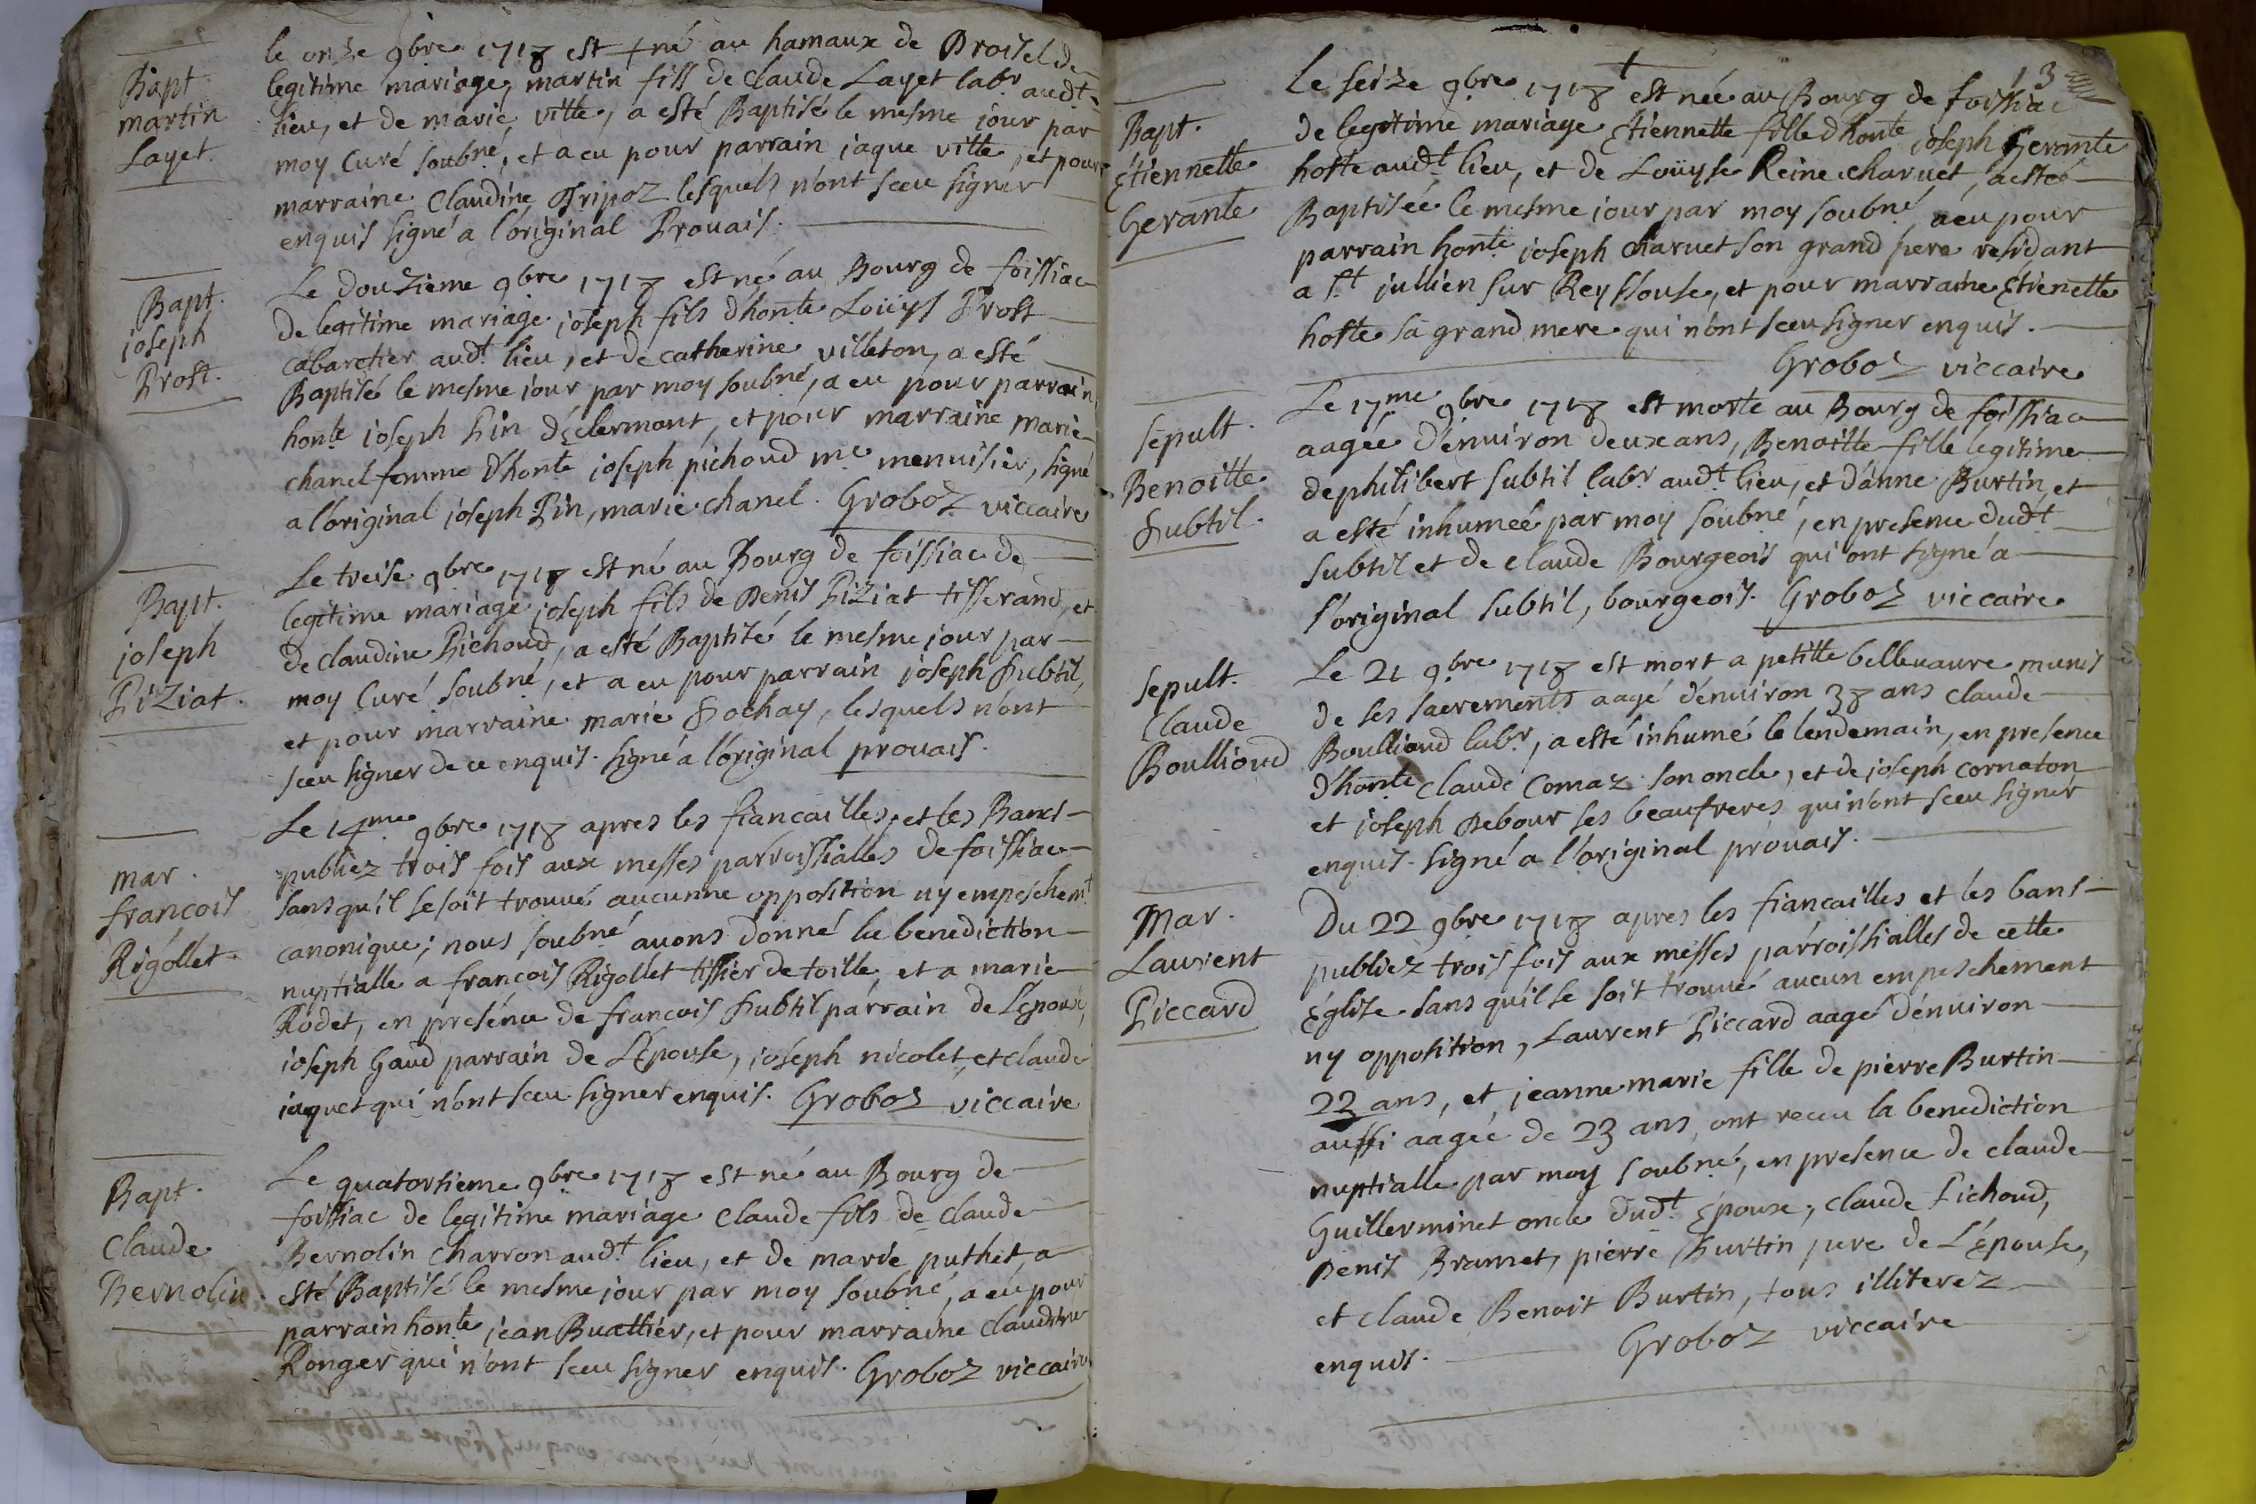 Bapt
martin
Layet.
le onze 9bre 1718 est +né au hamaux de Broisel de
legitime mariage, martin fils de claude Layet labr audt
lieu, et de marie, vitte, a esté Baptisé le mesme jour par
moy Curé soubné, et a eu pour parrain jaque vitte, et pour
marraine Claudine Tripoz lesquels n'ont sceu signer
enquis signé a l'original Prouais.
Bapt.
joseph
Prost.
Le douzieme 9bre 1718 est né au Bourg de foissiac
de legitime mariage joseph fils d'honte Loüys Prost
cabaretier audt lieu, et de catherine villeton, a esté
Baptisé le mesme jour par moy soubné, a eu pour parrain
honte joseph Pin d'éclermont, et pour marraine marie
chanel femme d'honte joseph pichoud me menuisier, signé
a l'original joseph Pin, marie chanel. Groboz viccaire
Bapt.
joseph
Piziat.
Le treise 9bre 1718 est né au Bourg de foissiac de
legitime mariage joseph fils de Denis Piziat tisserand, et
de claudine Pichoud, a esté Baptisé le mesme jour par
moy Curé soubné, et a eu pour parrain joseph Subtil,
et pour marraine marie Sochay, lesquels n'ont
sceu signer de ce enquis. signé a l'original prouais.
mar.
francois
Rigollet.
Le 14me 9bre 1718 apres les fiancailles, et les Bancs
publiez trois fois aux messes parroissialles de foissiac
sans qu'il se soit trouué aucunne opposition ny empeschemt
canonique; nous soubné auons donné la benediction
nuptialle a francois Rigollet tissier de toille et a marie
Rodet, en presence de francois Subtil parrain de L'Epoux,
joseph Gaud parrain de L'Epouse, joseph nicolet, et claude
jaquet qui n'ont sceu signer enquis. Groboz viccaire
Bapt.
Claude
Bernolin.
Le quatorsieme 9bre 1718 est né au Bourg de
foissiac de legitime mariage Claude fils de claude
Bernolin Charron audt lieu, et de marie puthet, a
esté Baptisé le mesme jour par moy soubné, a eu pour
parrain honte jean Buattier, et pour marraine claudine
Ronger qui n'ont sceu signer enquis. Groboz viccaire
13
Bapt.
Etiennette
Gerante
Le seize 9bre 1718 est née au Bourg de foissiac
de legitime mariage Etiennette fille d'honte joseph Gerante
hoste audt lieu, et de Loüyse Reine charuet, a esté
Baptisée le mesme jour par moy soubné a eu pour
parrain honte joseph Charuet son grand pere residant
a St jullien sur Reyssouse, et pour marraine Etienette
hoste sa grand mere qui n'ont sceu signer enquis.
Groboz viccaire
Sepult.
Benoitte
Subtil.
Le 17me 9bre 1718 est morte au Bourg de foissiac
aagée d'enuiron deux ans, Benoitte fille legitime
de philibert subtil labr audt lieu, et d'anne Burtin, et
a esté inhumeé par moy soubné, en presence dudt
subtil et de claude Bourgeois qui ont signé a
l'original subtil, bourgeois. Groboz viccaire
Sepult.
Claude
Boullioud
Le 21 9bre 1718 est mort a petitte belleuaure munis
de ses sacrements aagé d'enuiron 38 ans claude
Boullioud labr, a esté inhumé le lendemain, en presence
d'honte Claude Comaz son oncle, et de joseph cornaton
et joseph Debour ses beaufreres qui n'ont sceu signer
enquis. signé a l'original prouais.
Mar.
Laurent
Piccard
Du 22 9bre 1718 apres les fiancailles et les bans
publiez trois fois aux messes parroissialles de cette
Eglise sans qu'il se soit trouué aucun empeschement
ny opposition, Laurent Piccard aagé d'enuiron
22 ans, et jeanne marie fille de pierre Burtin
aussi aagée de 23 ans, ont receu la benediction
nuptialle par moy soubné, en presence de claude
Guillerminet oncle dudt Epoux, claude Pichoud,
Denis Bramet, pierre Burtin pere de L'Epouse,
et claude Benoit Burtin, tous illiterez
enquis. Groboz viccaire